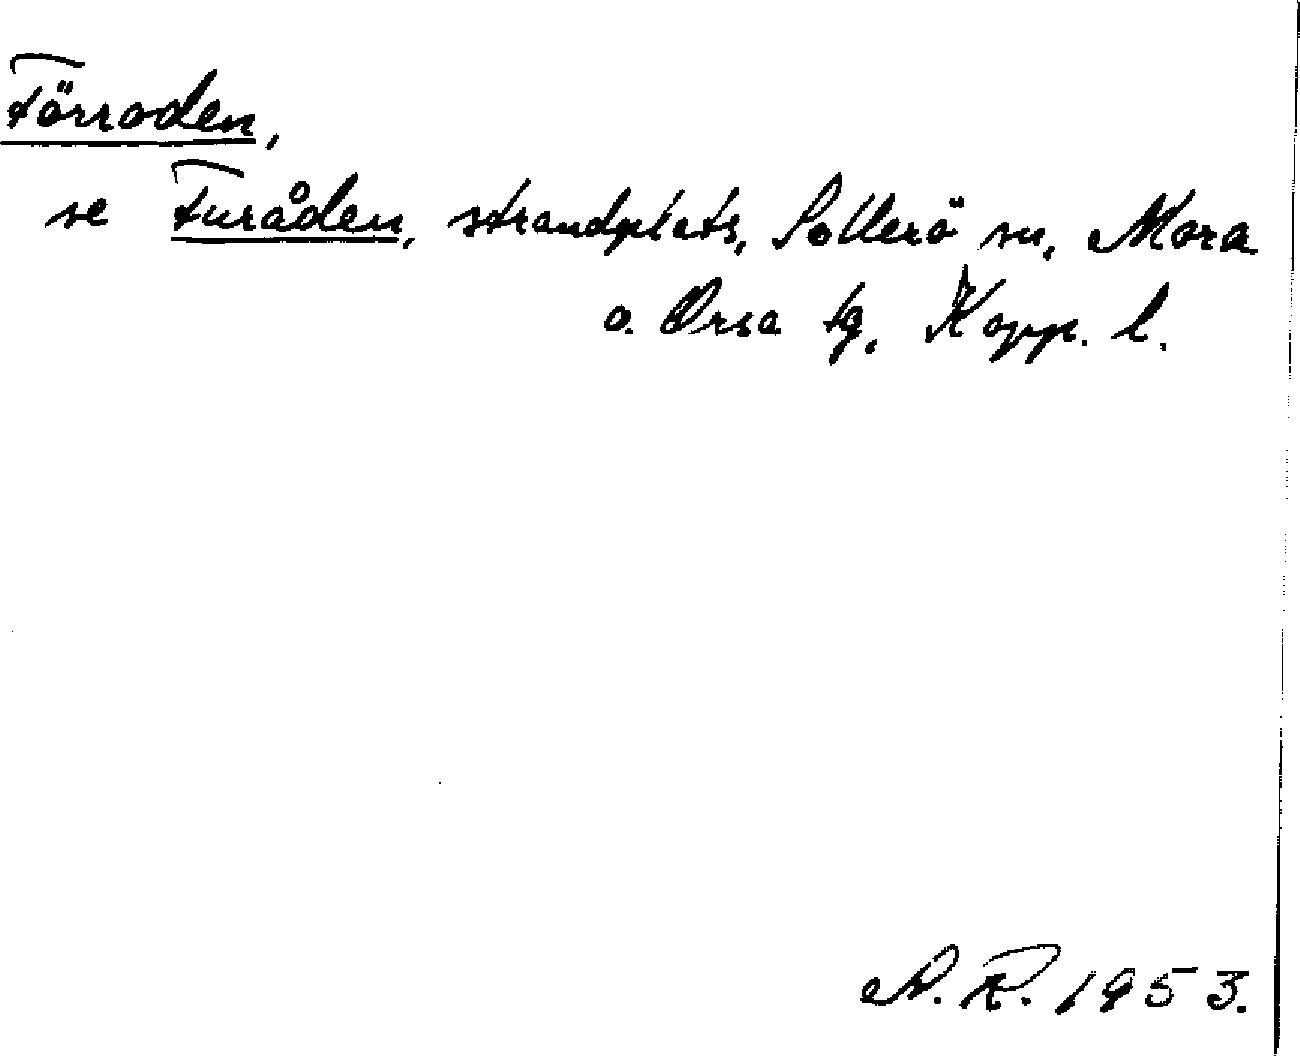 Förroden,
se Furåden, strandplats, Sollerö sn, Mora
o. Orsa tg, Kopp. l.
N. R. 1953.